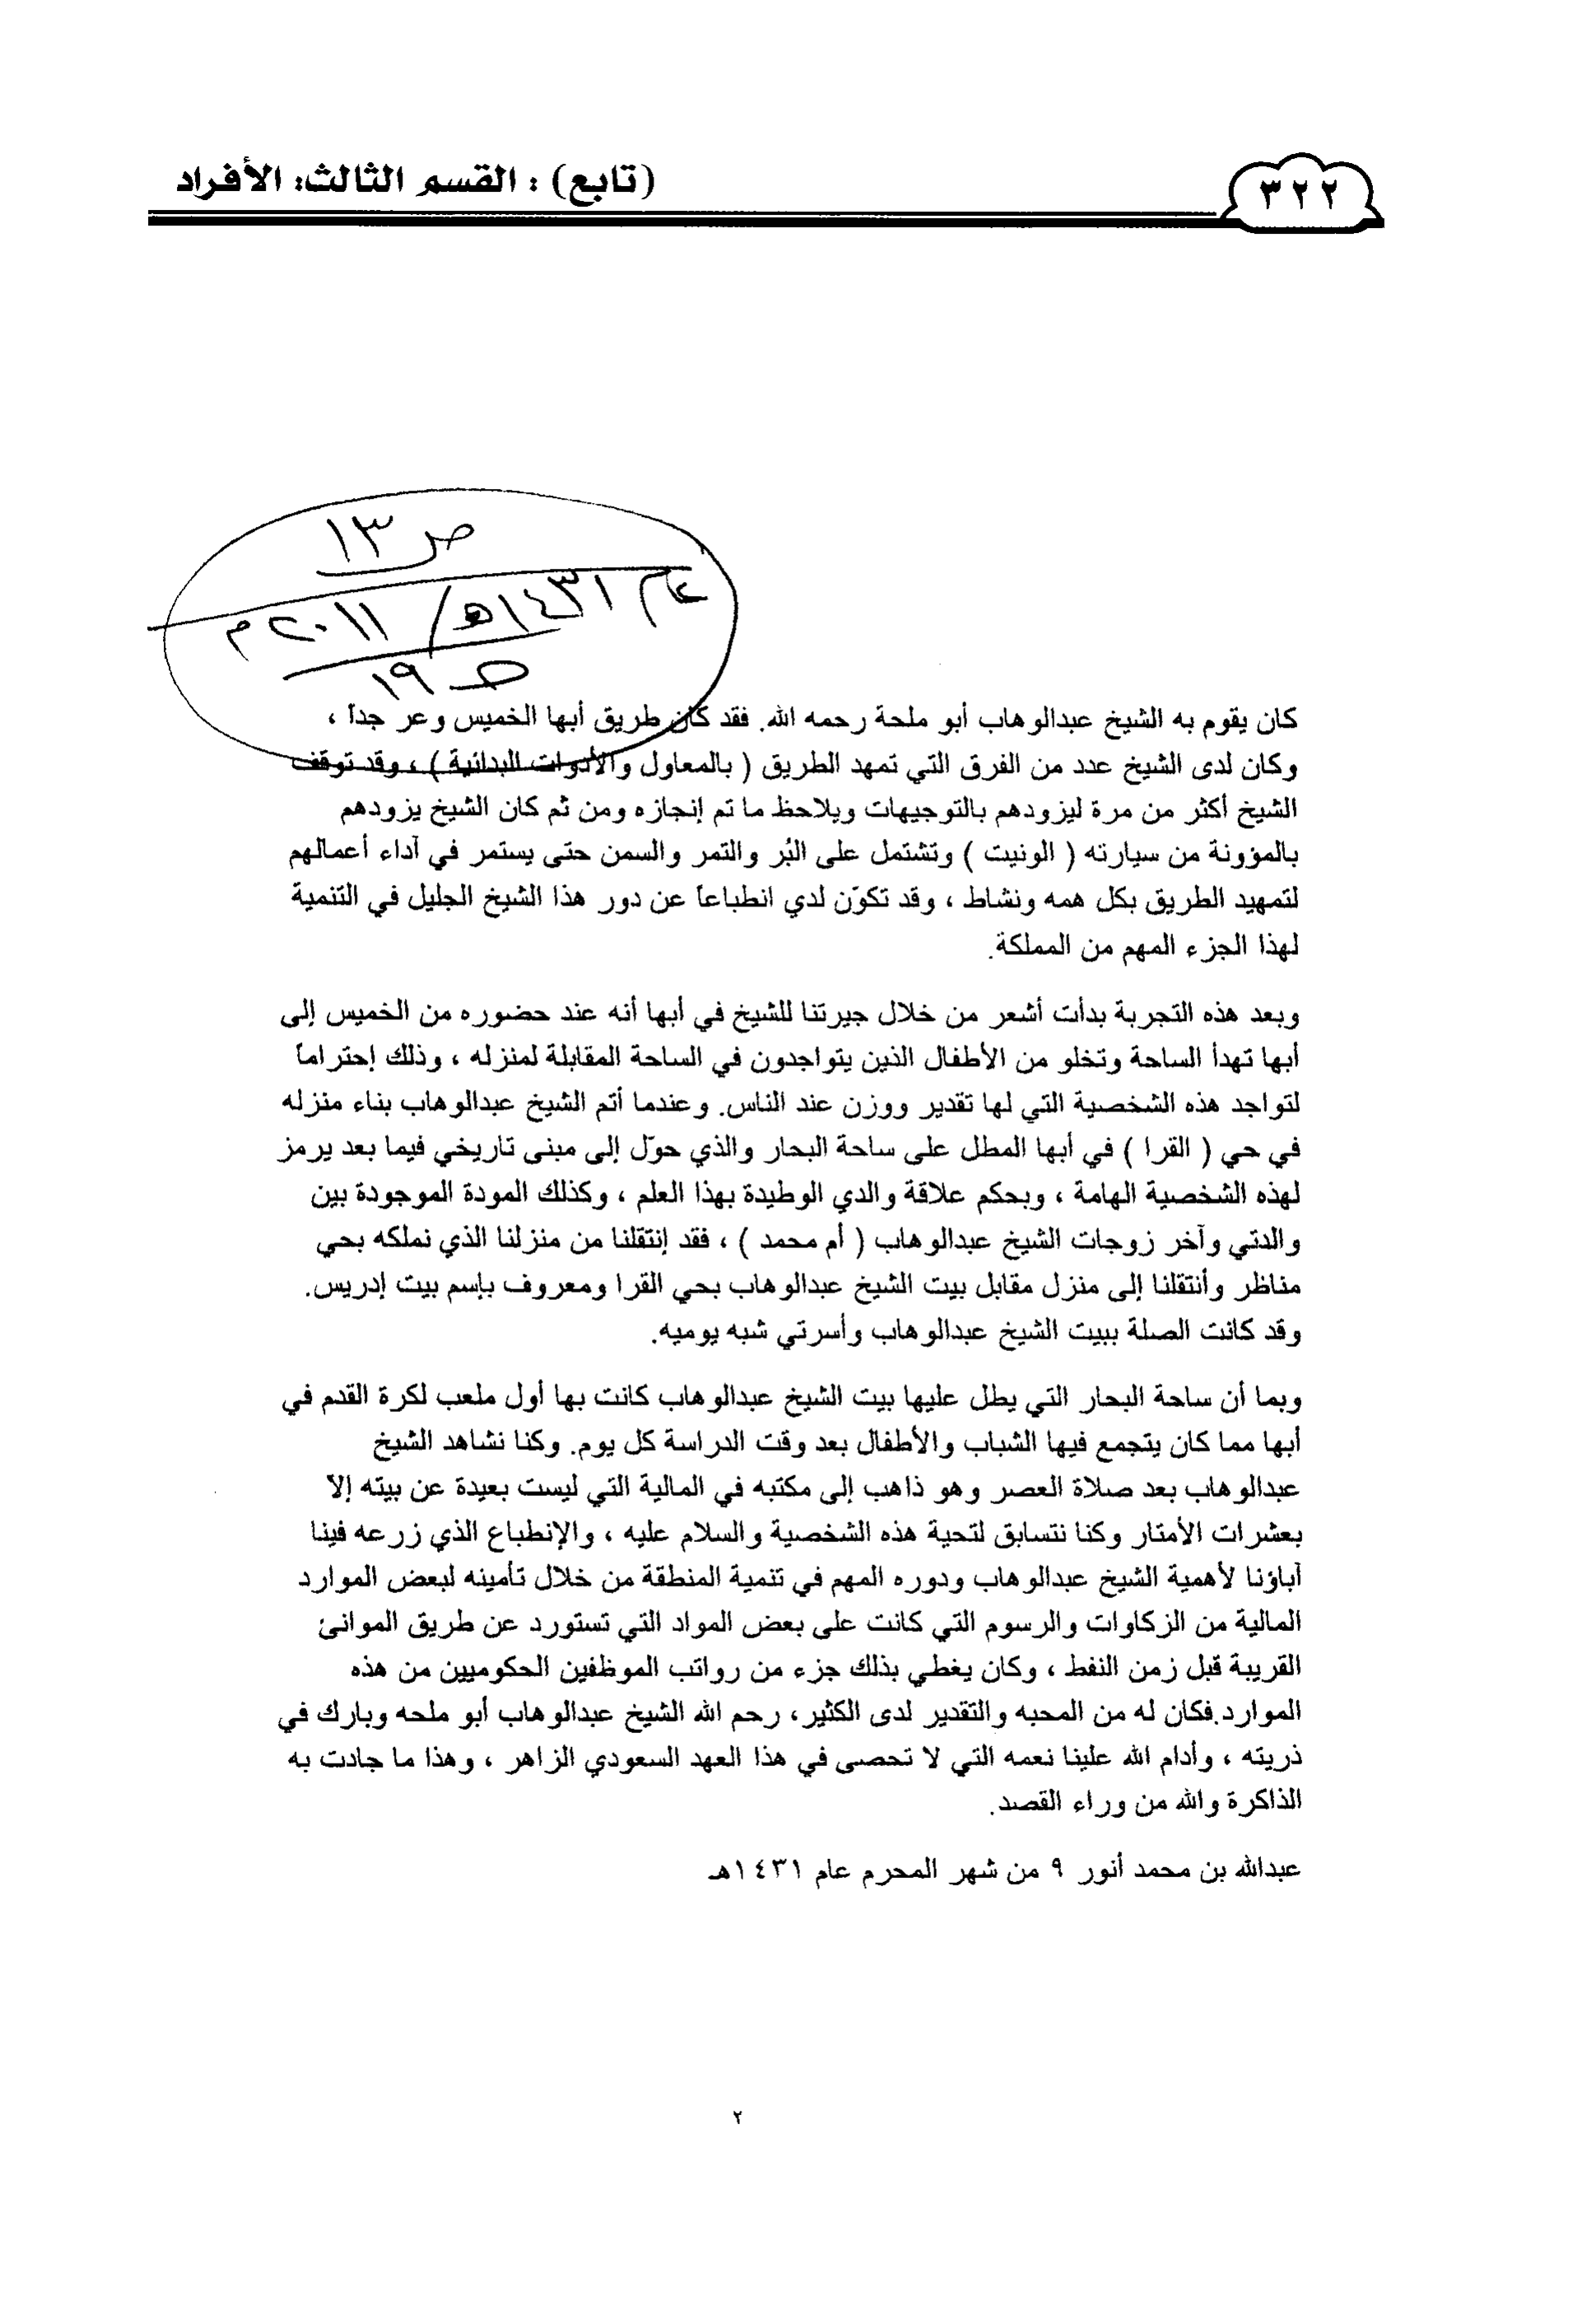 ٣٢٢
(تابع) : القسم الثالث: الأفراد
ص ١٣
عام ١٤٣١هـ/ ٢٠١١م
ص ١٩
كان يقوم به الشيخ عبدالوهاب أبو ملحة رحمه الله. فقد كان طريق أبها الخميس وعر جداً ،
وكان لدى الشيخ عدد من الفرق التي تمهد الطريق ( بالمعاول والأدوات البدائية ) ، وقد توقف
الشيخ أكثر من مرة ليزودهم بالتوجيهات ويلاحظ ما تم إنجازه ومن ثم كان الشيخ يزودهم
بالمؤونة من سيارته ( الونيت ) وتشتمل على البُر والتمر والسمن حتى يستمر في آداء أعمالهم
لتمهيد الطريق بكل همه ونشاط ، وقد تكوّن لدي انطباعاً عن دور هذا الشيخ الجليل في التنمية
لهذا الجزء المهم من المملكة.
وبعد هذه التجربة بدأت أشعر من خلال جيرتنا للشيخ في أبها أنه عند حضوره من الخميس إلى
أبها تهدأ الساحة وتخلو من الأطفال الذين يتواجدون في الساحة المقابلة لمنزله ، وذلك إحتراماً
لتواجد هذه الشخصية التي لها تقدير ووزن عند الناس. وعندما أتم الشيخ عبدالوهاب بناء منزله
في حي ( القرا ) في أبها المطل على ساحة البحار والذي حوّل إلى مبنى تاريخي فيما بعد يرمز
لهذه الشخصية الهامة ، وبحكم علاقة والدي الوطيدة بهذا العلم ، وكذلك المودة الموجودة بين
والدتي وآخر زوجات الشيخ عبدالوهاب ( أم محمد ) ، فقد إنتقلنا من منزلنا الذي نملكه بحي
مناظر وأنتقلنا إلى منزل مقابل بيت الشيخ عبدالوهاب بحي القرا ومعروف بإسم بيت إدريس.
وقد كانت الصلة ببيت الشيخ عبدالوهاب وأسرتي شبه يوميه.
وبما أن ساحة البحار التي يطل عليها بيت الشيخ عبدالوهاب كانت بها أول ملعب لكرة القدم في
أبها مما كان يتجمع فيها الشباب والأطفال بعد وقت الدراسة كل يوم. وكنا نشاهد الشيخ
عبدالوهاب بعد صلاة العصر وهو ذاهب إلى مكتبه في المالية التي ليست بعيدة عن بيته إلا
بعشرات الأمتار وكنا نتسابق لتحية هذه الشخصية والسلام عليه ، والإنطباع الذي زرعه فينا
آباؤنا لأهمية الشيخ عبدالوهاب ودوره المهم في تنمية المنطقة من خلال تأمينه لبعض الموارد
المالية من الزكاوات والرسوم التي كانت على بعض المواد التي تستورد عن طريق الموانئ
القريبة قبل زمن النفط ، وكان يغطي بذلك جزء من رواتب الموظفين الحكوميين من هذه
الموارد.فكان له من المحبه والتقدير لدى الكثير، رحم الله الشيخ عبدالوهاب أبو ملحه وبارك في
ذريته ، وأدام الله علينا نعمه التي لا تحصى في هذا العهد السعودي الزاهر ، وهذا ما جادت به
الذاكرة والله من وراء القصد.
عبدالله بن محمد أنور ٩ من شهر المحرم عام ١٤٣١هـ
٢